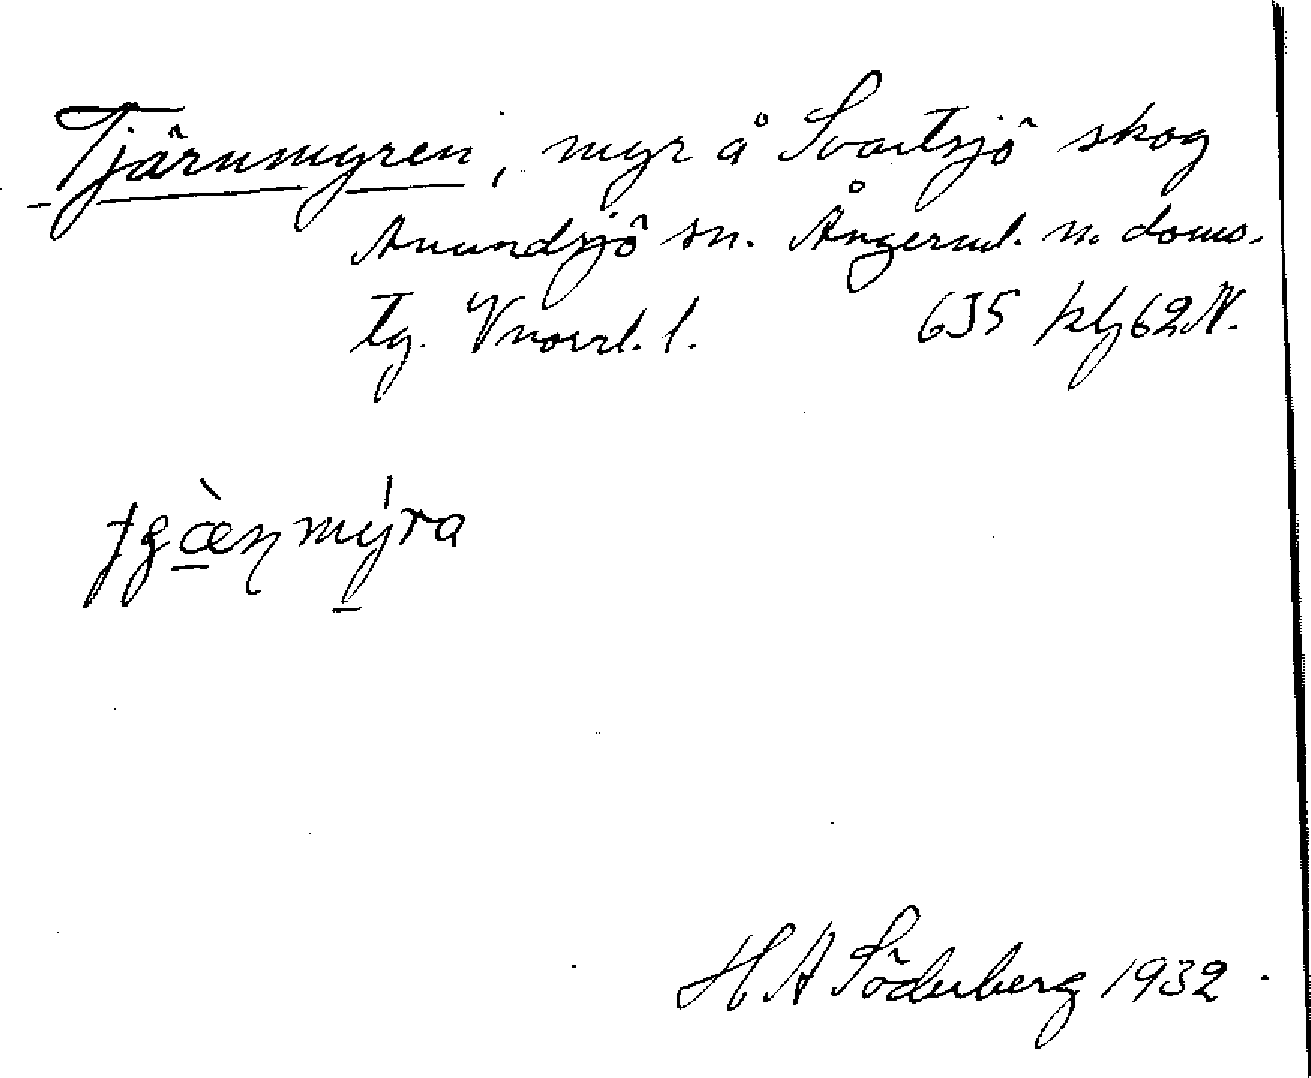 Tjärnmyren, myr å Svartsjö skog
Anundsjö sn. Ångerml. n. doms.
tg. Vnorrl. l. 635 klj 62 N.
ʈʂæ̀ɳmýra
H A Söderberg 1932